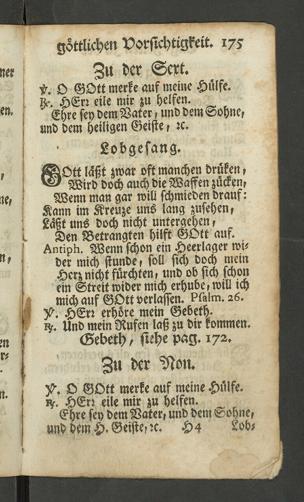 göttlichen Vorsichtigkeit. 175
Zu der Sext.
℣. O GOtt merke auf meine Hülfe.
℟. HErꝛ eile mir zu helfen.
Ehre sey dem Vater, und dem Sohne,
und dem heiligen Geiste, ꝛc.
Lobgesang.
GOtt läßt zwar oft manchen drüken,
Wird doch auch die Waffen zücken,
Wenn man gar will schmieden drauf:
Kann im Kreuze uns lang zusehen,
Läßt uns doch nicht untergehen,
Den Betrangten hilft GOtt auf.
Antiph. Wenn schon ein Heerlager wi-
der mich stunde, soll sich doch mein
Herz nicht fürchten, und ob sich schon
ein Streit wider mich erhube, will ich
mich auf GOtt verlassen. Psalm. 26.
℣. HErꝛ erhöre mein Gebeth.
℟. Und mein Rufen laß zu dir kommen.
Gebeth, siehe pag. 172.
Zu der Non.
℣. O GOtt merke auf meine Hülfe.
℟. HErꝛ eile mir zu helfen.
Ehre sey dem Vater, und dem Sohne,
und dem H. Geiste, ꝛc. H4 Lob-